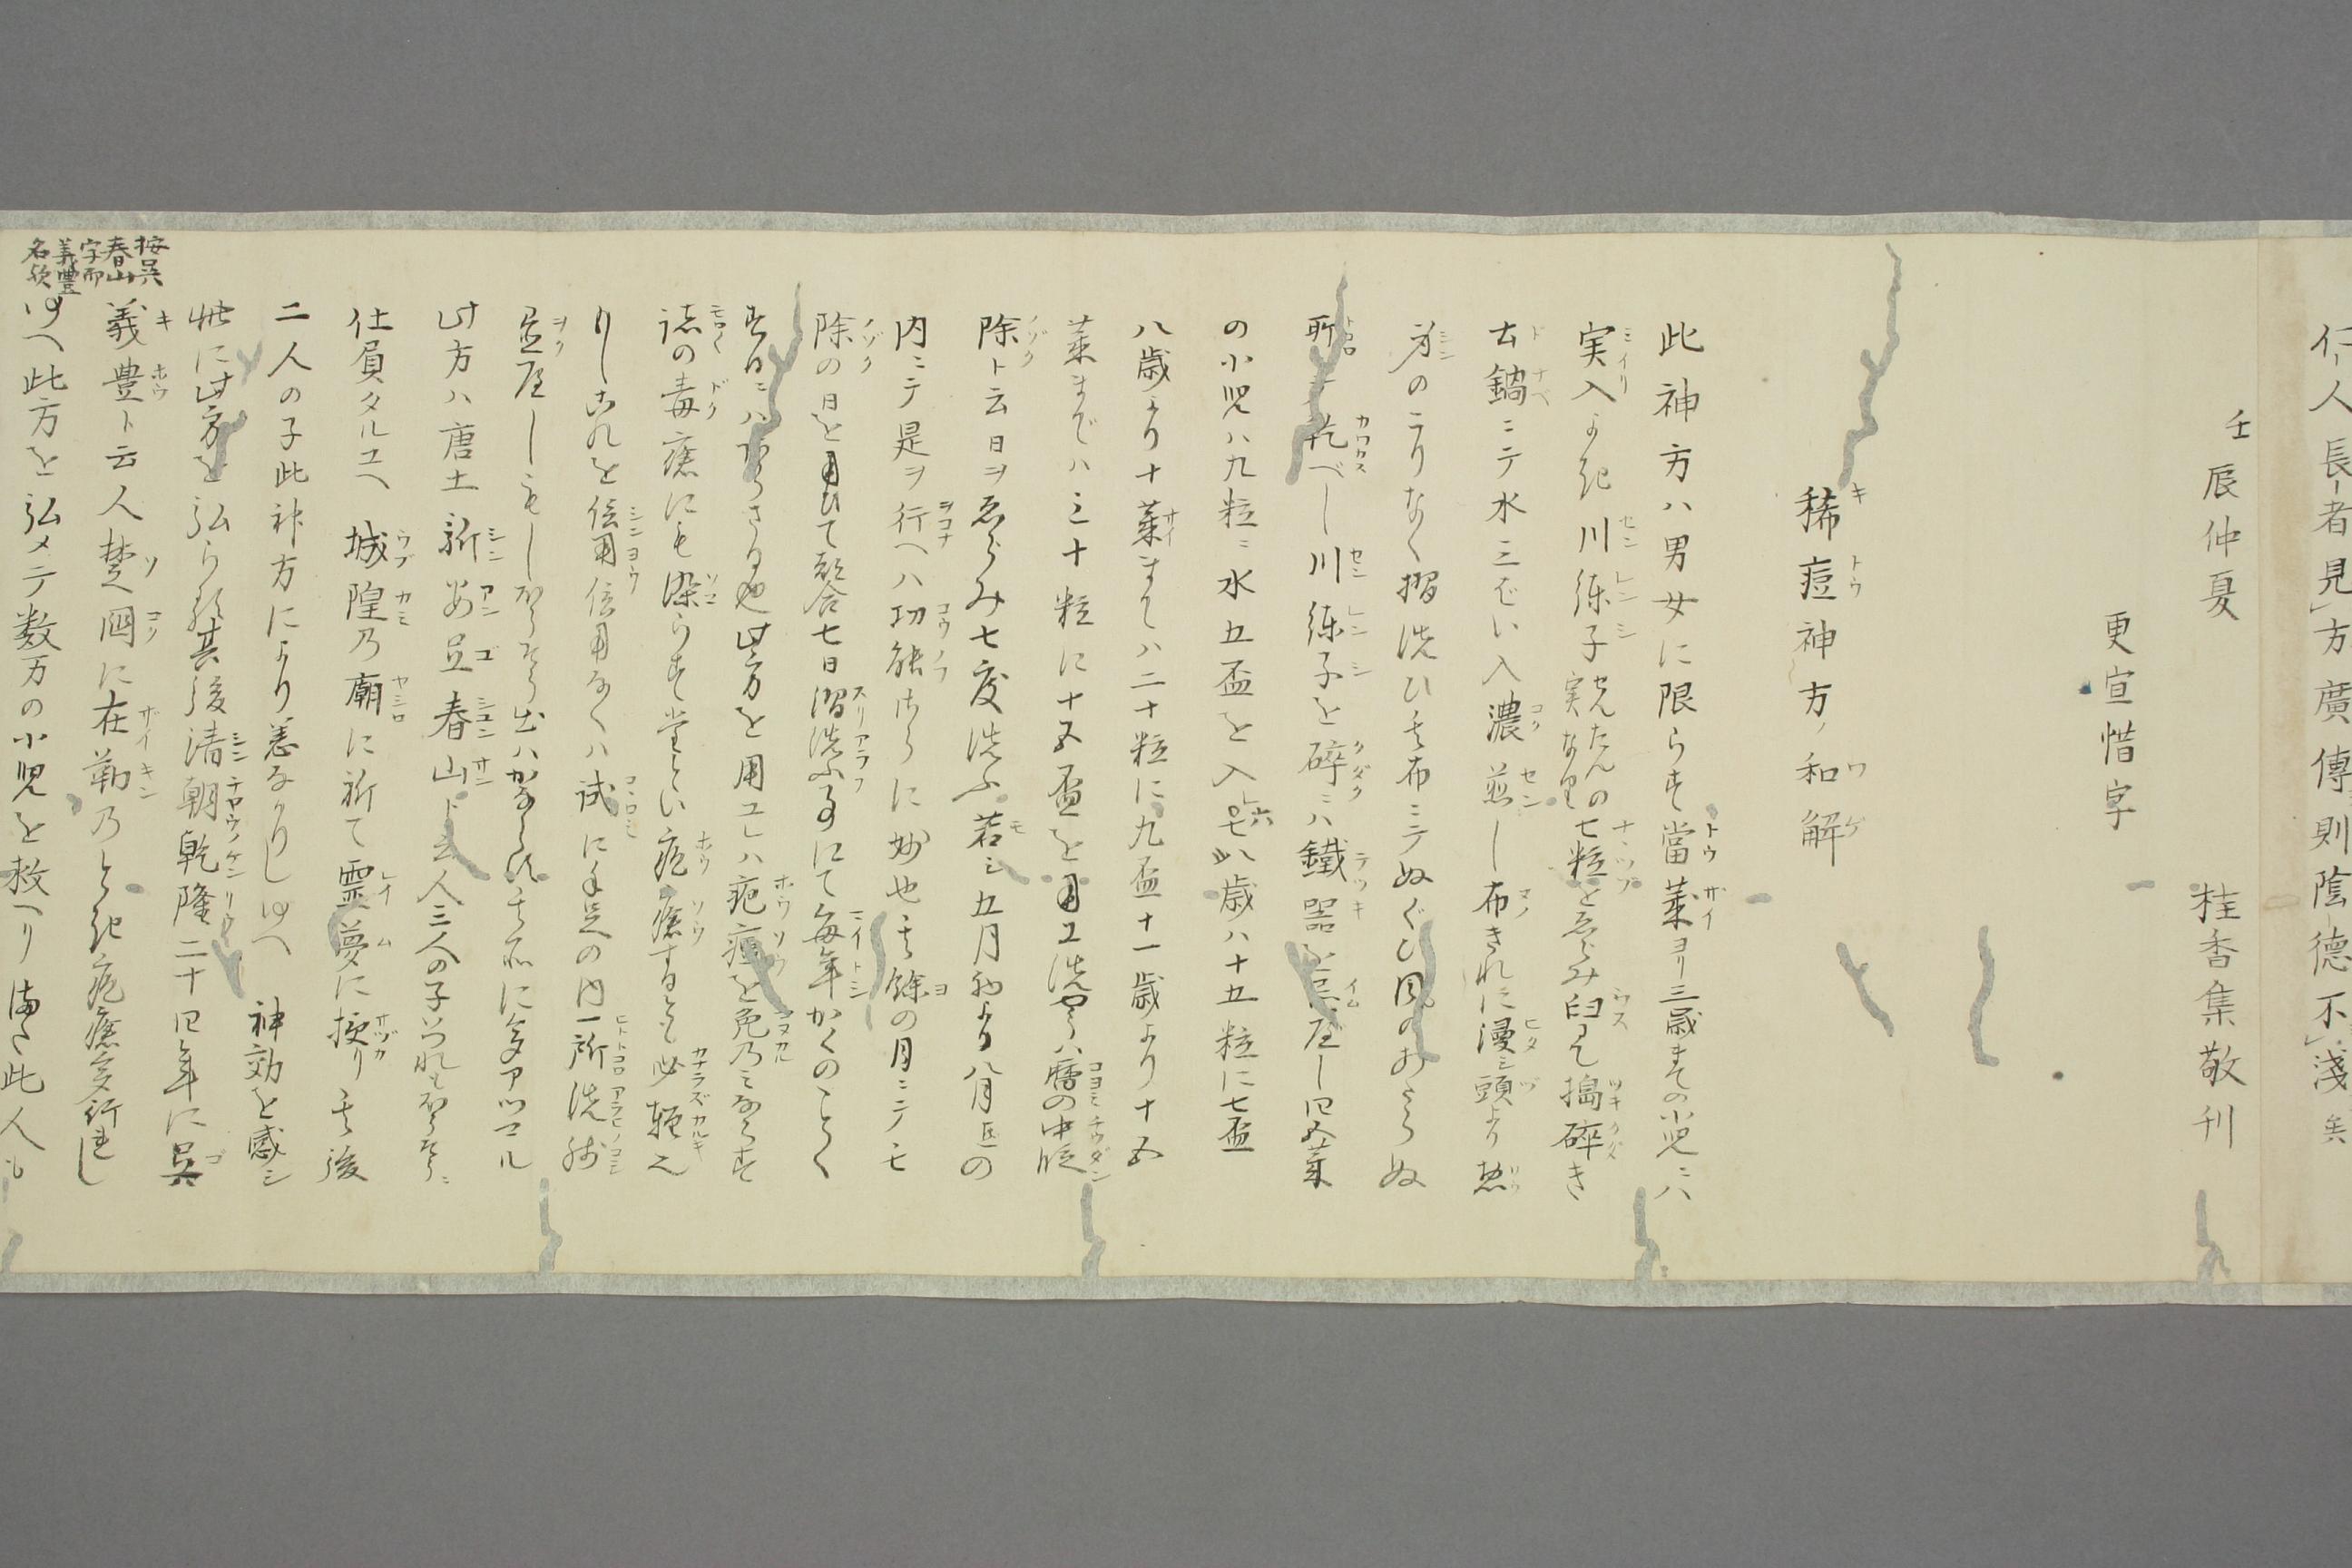 仁人長者見方廣傳則陰德不淺矣
壬辰仲夏
桂香集敬刊
更宣惜字
稀痘神方ノ和解
此神方ハ男女に限らす當歳ヨリ三歳まての小児ニハ
実入よき川練子せんたんの実なり七粒をゑらみ臼にて搗碎き
土鍋ニテ水三ばい入濃煎し布きれに漫シ頭より惣
身のこりなく摺洗ひ其布ニテぬぐひ風のあたらぬ
所ニテ乾べし川練子を碎ニハ鐵器を忌べし四五歳
の小児ハ九粒ニ水五盃を入六七八歳ハ十五粒に七盃
八歳より十歳まてハ二十粒に九盃十一歳より十五
歳までハ三十粒に十五盃を用ユ洗やうハ暦の中段
除ト云日ヲゑらみ七度洗ふ若シ五月初より八月迄の
内ニテ是ヲ行ヘハ功能さらに妙也其餘の月ニテモ
除の日を用ひて都合七日摺洗ふ事にて毎年かくのことく
する也此方を用ユレハ疱瘡を免乃ミならす
諸の毒瘡にも染らす堂とい疱瘡するとも必軽し
もしこれを信用信用なくハ試に手足の内一所洗残
置産しもし
此方ハ唐土新安呉春山ト云人三人の子
仕負タルユヘ城隍乃廟に祈て霊夢に授り其後
二人の子此神方により恙なかりしゆへ神効を感シ
世に此方を弘らる其後清朝乾隆二十四年に呉
義豊ト云人楚國に在勤乃とき疱瘡多行ハし
ゆへ此方を弘メテ数万の小児を救へり此人も
按呉春山字而義豊名歟